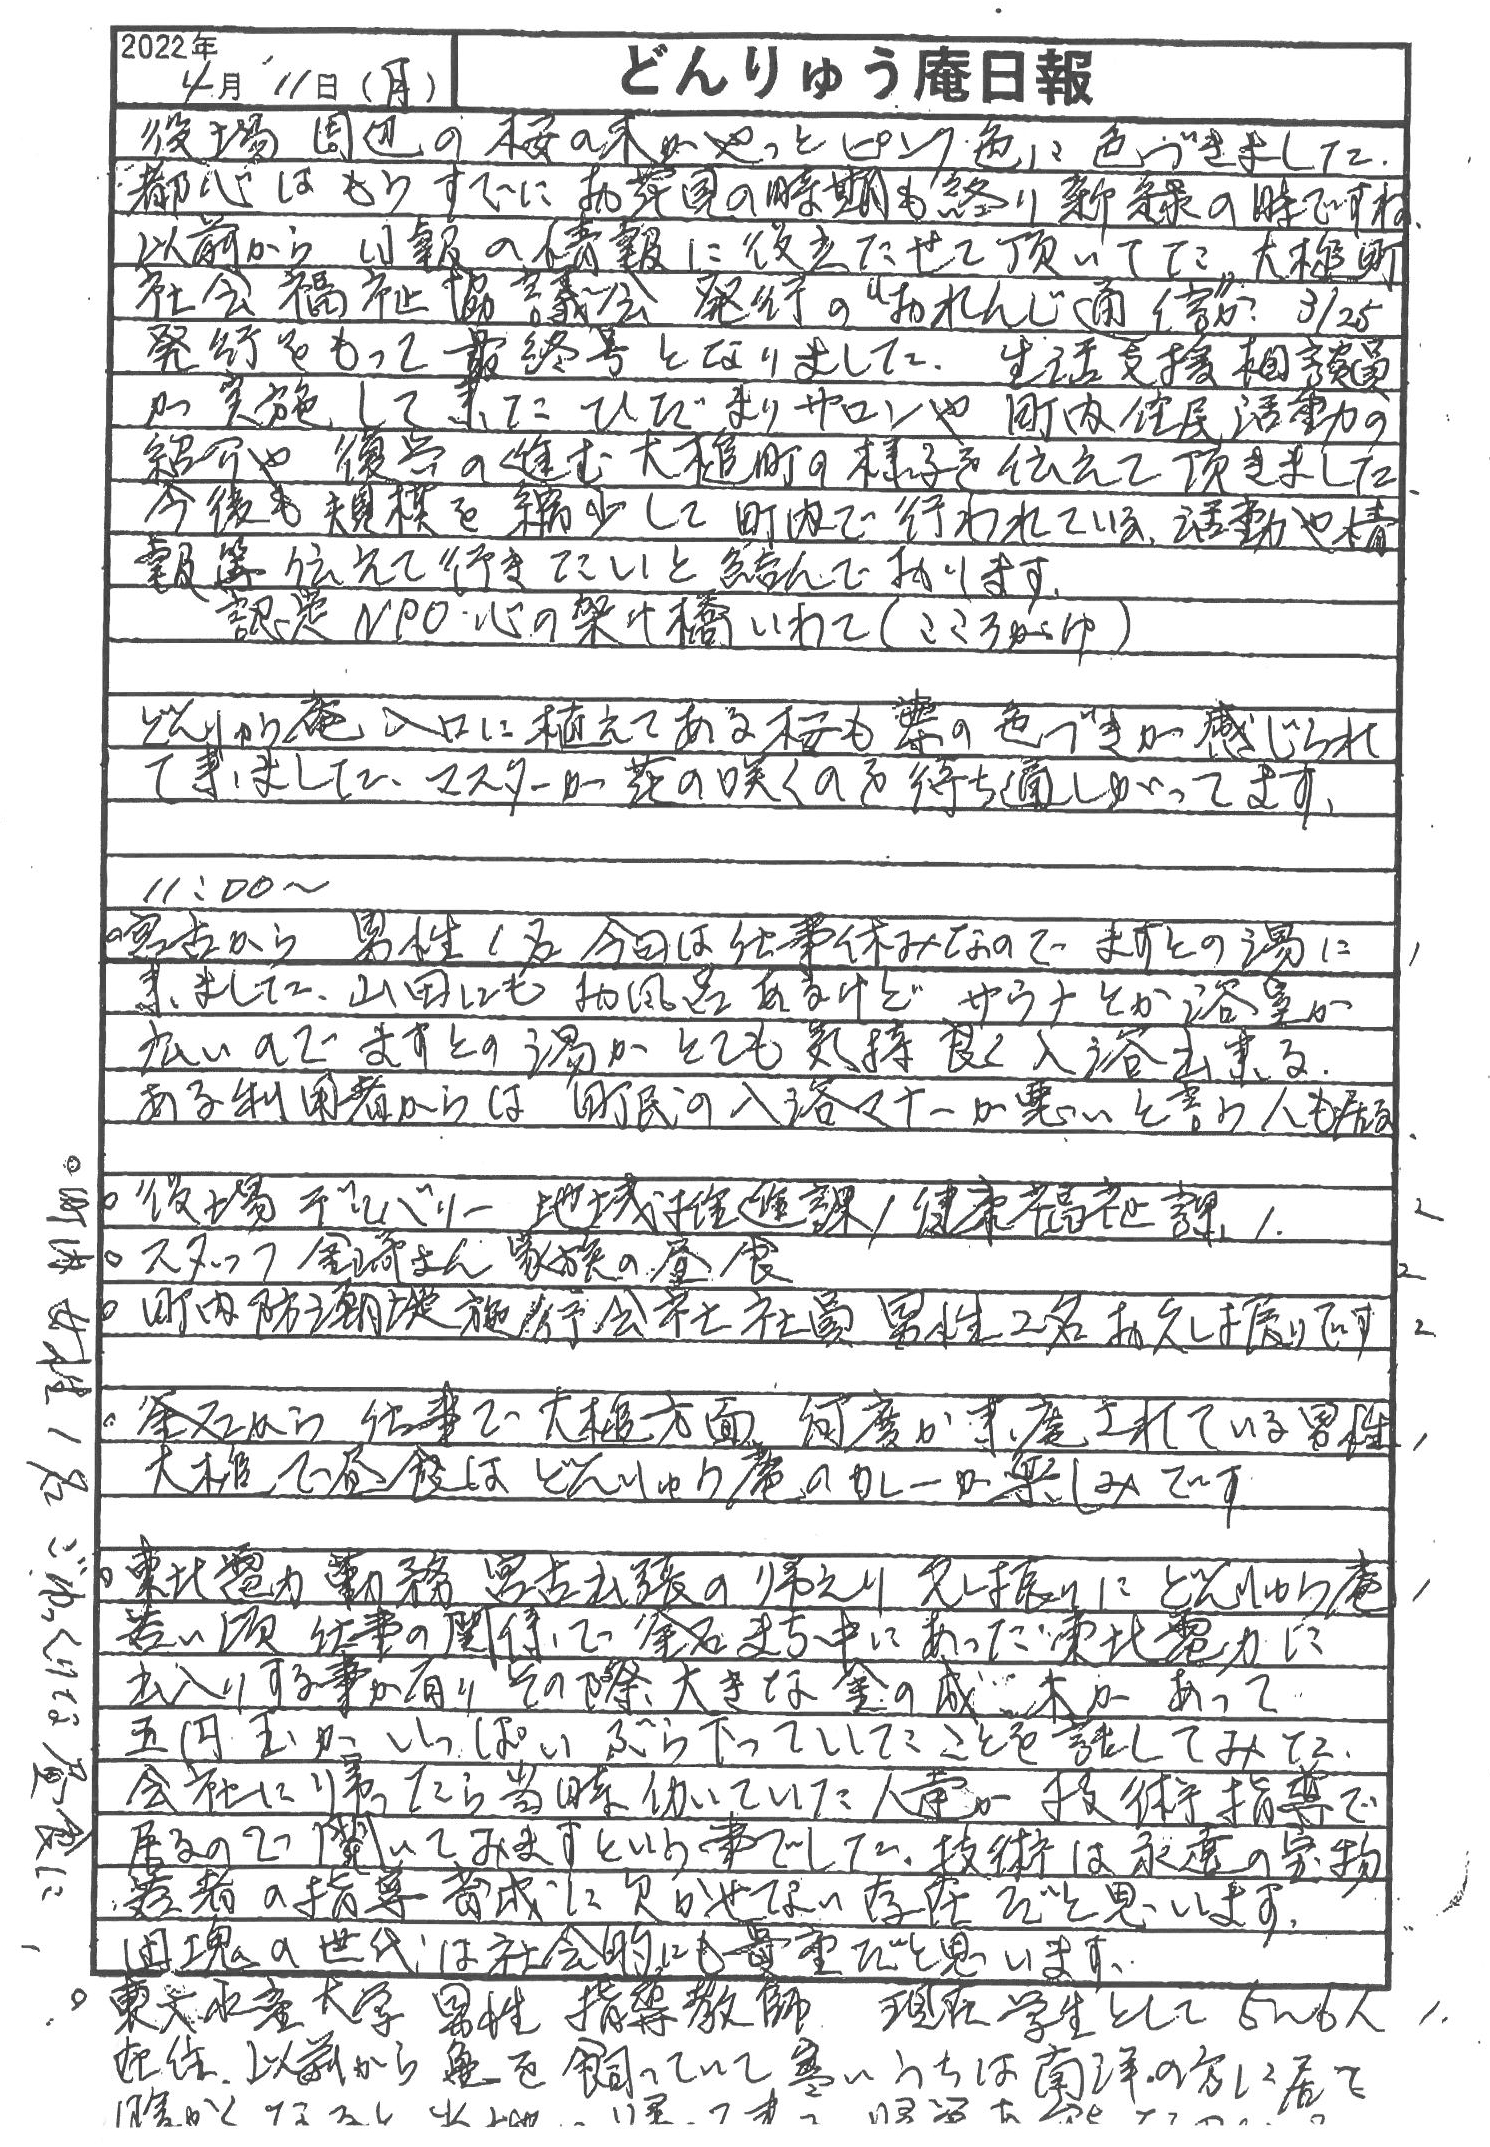 2022年
4月 11日(月)
どんりゅう庵日報
役場 周辺の桜の木がやっとピンク色に色づきました.
都心はもうすでにお花見の時期も終り新緑の時ですね.
以前から 日報の情報に役立たせて頂いてた 大槌町
社会福祉協議会 発行の"おれんじ通信"が 3/25
発行をもって最終号となりました. 生活支援相談員
が実施して来たひだまりサロンや 町内住民活動の
紹介や 復興の進む大槌町の様子を伝えて頂きました
今後も規模を縮少して 町内で行われている、活動や情
報等伝えて行きたいと結んでおります.
認定NPO・心の架け橋いわて(こころがけ)
どんりゅう庵入口に植えてある桜も蕾の色づきが感じられ
て来ました、マスターが花の咲くのを待ち遠しがってます、
11:00〜
○宮古から 男性1名 今日は仕事休みなので ますとの湯に 1
来ました、山田にもお風呂あるけど サウナとか浴室が
広いので ますとの湯がとても気持良く入浴出来る.
ある利用者からは 町民の入浴マナーが悪いと言う人も居る.
○役場デリバリー 地域推進課1 健康福祉課1. 2
○スタッフ金崎さん家族の昼食 2
○町内防潮堤施行会社社員男性2名お久し振りです 2
○釜石から 仕事で大槌方面 何度か来庵されている男性 1
大槌で昼食はどんりゅう庵のカレーが楽しみです
○東北電力勤務 宮古出張の帰えり久し振りにどんりゅう庵 1
若い頃仕事の関係で釜石まち中にあった東北電力に
出入りする事が有りその際大きな金の成木があって
五円玉がいっぱいぶら下っていたことを話してみた、
会社に帰ったら当時働いていた人達が 技術指導で
居るので聞いてみますという事でした、技術は永遠の宝物
若者の指導育成に欠かせない存在だと思います、
団塊の世代は社会的にも貴重だと思います、
○東大水産大学 男性 指導教師 現在学生として5〜6人 1.
在住、以前から亀を飼っていて寒いうちは南洋の方に居て
○町内女性1名ごゆっくりな昼食に 1